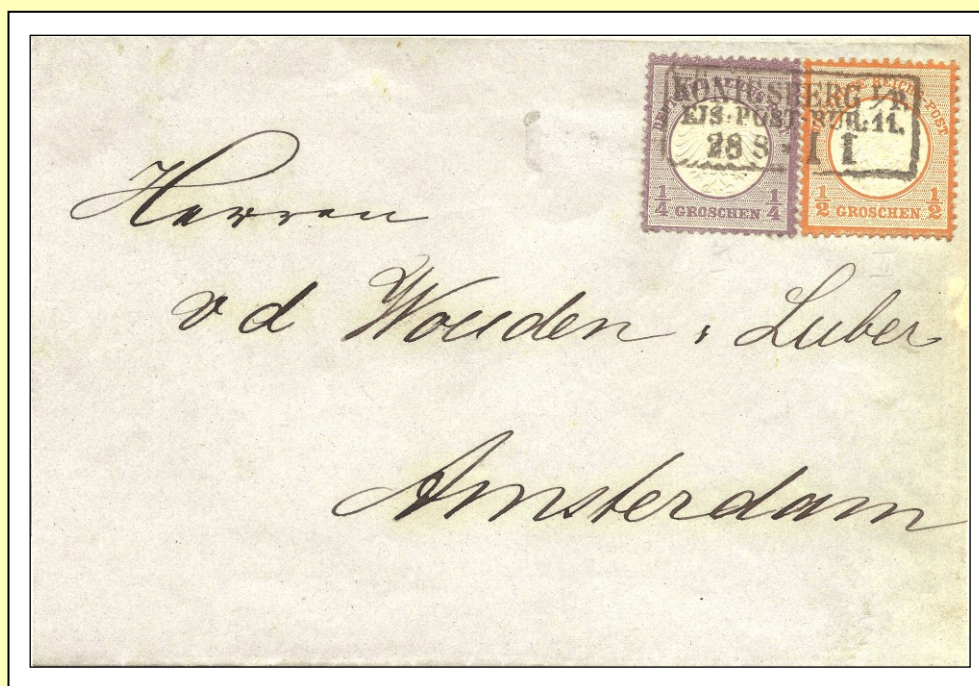 KÖNIGSBERG I/P.
EIS. POST-BUR. 11.
28 8 * I I
1/4 GROSCHEN 1/4
1/2 GROSCHEN 1/2
Herren
v d Wouden & Luber
Amsterdam